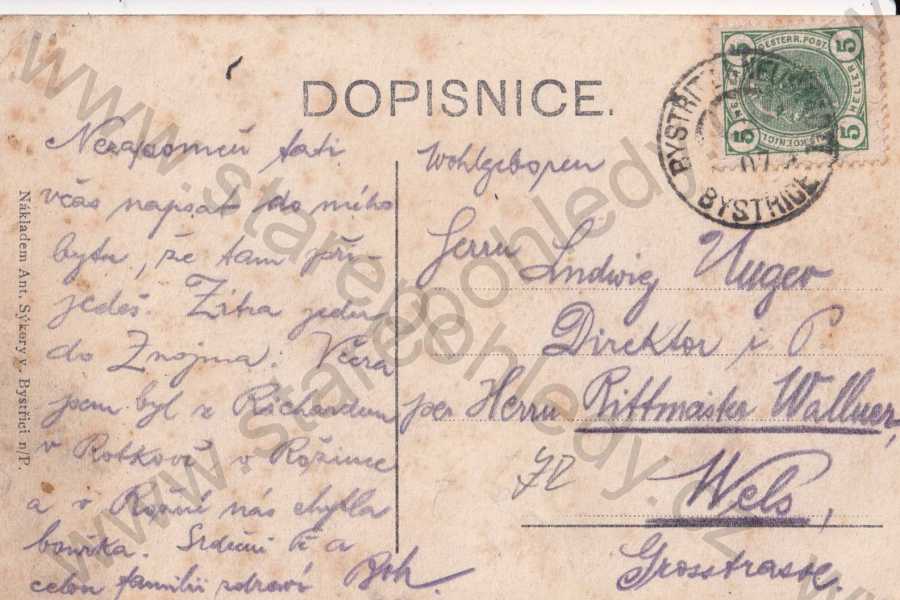 DOPISNICE.
Nezapomeň tati
včas napsat do mého
bytu, že tam při-
jedeš. Zítra jedu
do Znojma. Včera
jsem byl z Richardem
v Rotkově, v Rožince
a v Rožně nás chytla
bouřka. Srdečně Tě a
celou familii zdraví Boh.
Nákladem Ant. Sýkory v Bystřici n/P.
Wohlgeboren
Herrn Ludwig Unger
Direktor i P
per Herrn Rittmaister Wallner,
Wels,
Grosstrasse.
72
5 5
OESTERR. POST.
HELLER
5 5
BYSTŘICE
BYSTRICE
07
www.starepohledy.cz